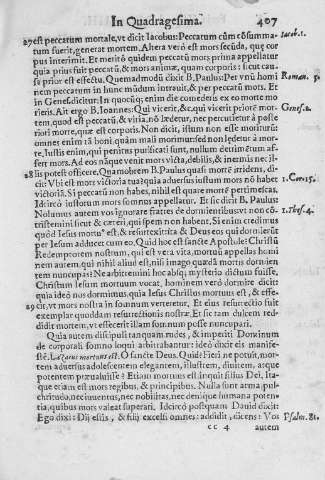 In Quadragesima. 407
27 est peccatum mortale, vt dicit Iacobus: Peccatum cùm cõsumma- Iacob. 1.
tum fuerit, generat mortem. Altera verò est mors secũda, quę cor
pus interimit. Et meritò quidem peccatũ mors prima appellatur
quia prius fuit peccatũ, & mors animæ, quam corporis: sicut cau-
sa prius est effectu. Quemadmodũ dixit B. Paulus: Per vnũ homi Roman. 5.
nem peccatum in hunc mũdum intrauit, & per peccatũ mors. Et
in Genesi dicitur: In quocũq; enim die comederis ex eo morte mo Genes. 2.
rieris. Ait ergo B. Ioannes: Qui vicerit, &c. qui vicerit priorẽ mor-
tem, quod est peccatũ, & vitia, nõ lædetur, nec percutietur à poste
riori morte, quæ est corporis. Non dicit, istum non esse moriturũ:
omnes enim tã boni, quàm mali morimur: sed non lędetur à mor-
te. Iustis enim, qui penitus purificati sunt, nullum detrimẽtum af-
fert mors. Ad eos nãque venit mors victa, debilis, & inermis nec il-
28 lis potest officere. Quamobrem B. Paulus quasi mortẽ irridens, di-
cit: Vbi est mors victoria tua? quia aduersus iustum mors nõ habet 1. Cor. 15.
victoriã. Si peccatũ non habes, nihil est quare mortẽ pertimescas.
Idcircò iustorum mors somnus appellatur. Et sic dicit B. Paulus:
Nolumus autem vos ignorare fratres de dormientibus, vt non cõ- 1. Thes. 4.
tristemini sicut & cæteri, qui spem non habent. Si enim credimus
quòd Iesus mortuꝰ est, & resurrexit: ita & Deus eos qui dormierũt
per Iesum adducet cum eo. Quid hoc est sancte Apostole: Christũ
Redemptorem nostrum, qui est vera vita, mortuũ appellas homi
nem autem, qui nihil aliud est, nisi imago quædã mortis dormien
tem nuncupas? Ne arbitremini hoc absq; mysterio dictum fuisse.
Christum Iesum mortuum vocat, hominem verò dormire dicit:
quia ideò nos dormimus, quia Iesus Christus mortuus est, & effe-
29 cit, vt mors nostra in somnum verteretur. Et eius resurrectio fuit
exemplar quoddam resurrectionis nostræ. Et sic tam dulcem red-
didit mortem, vt effecerit illam somnum posse nuncupari.
Quia autem discipuli tanquam rudes, & imperiti Dominum
de corporali somno loqui arbitrabantur: ideò dixit eis manife-
stè. Lazarus mortuus est. O sancte Deus. Quid? Fieri ne potuit, mor-
tem aduersus adolescentem elegantem, illustrem, diuitem, atque
potentem præualuisse? Etiam mortuus est, inquit filius Dei. Ita-
que etiam est mors regibus, & principibus. Nulla sunt arma, pul-
chritudo, nec iuuentus, nec nobilitas, nec denique humana poten-
tia, quibus mors valeat superari. Idcircò postquam Dauid dixit:
Ego dixi: Dij estis, & filij excelsi omnes: addidit, dicens: Vos Psalm. 81.
cc 4 autem